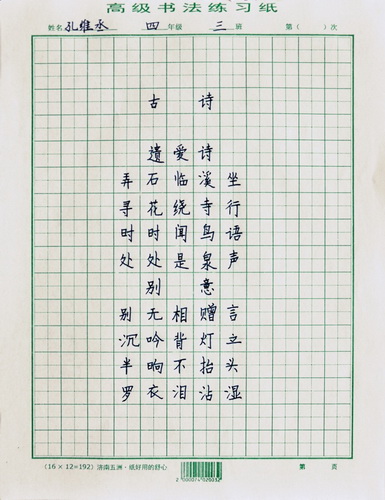 高级书法练习纸
姓名 孔维丞 四 年级 三 班 第( )次
古诗
遗爱诗
弄石临溪坐
寻花绕寺行
时时闻鸟语
处处是泉声
别意
别无相赠言
沉吟背灯立
半晌不抬头
罗衣泪沾湿
(16×12=192) 济南五洲·纸好用的舒心 第 页